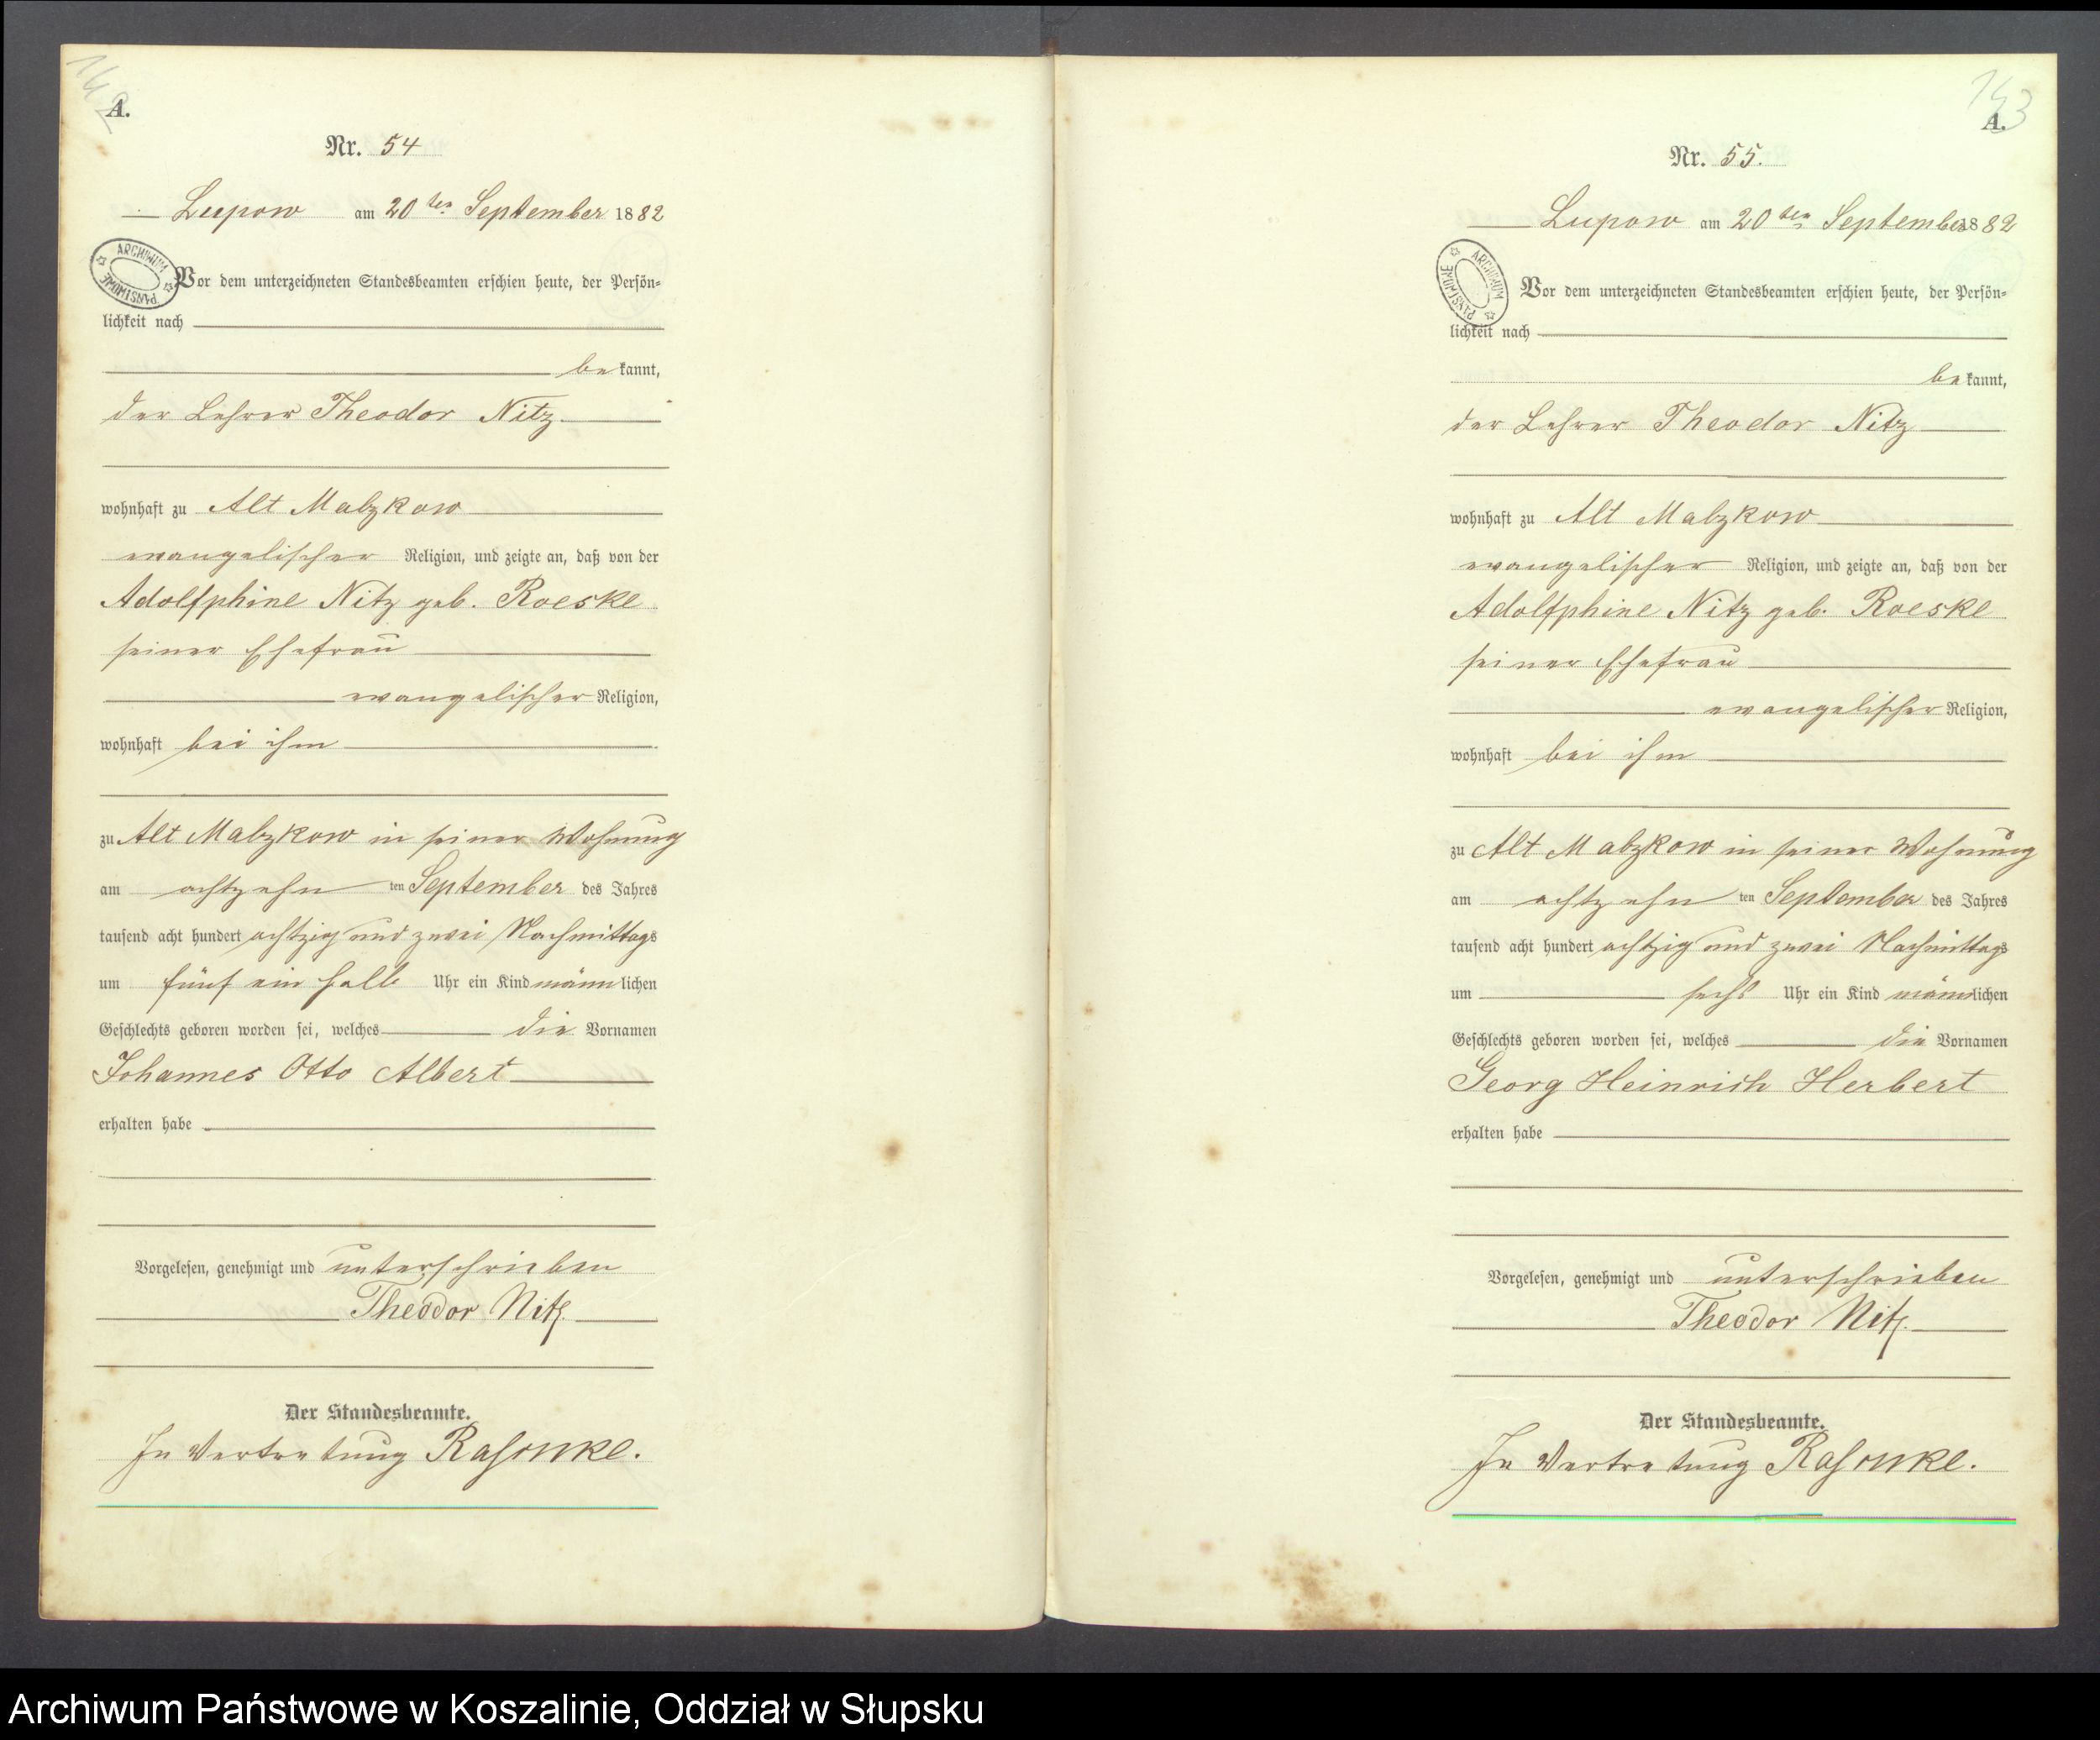 142
A.
Nr. 54
Lupow am 20ten September 1882
ARCHIWUM PAŃSTWOWE
Vor dem unterzeichneten Standesbeamten erschien heute, der Persön-
lichkeit nach
bekannt,
der Lehrer Theodor Nitz.
wohnhaft zu Alt Malzkow
evangelischer Religion, und zeigte an, daß von der
Adolfphine Nitz geb. Roeske
seiner Ehefrau
evangelischer Religion,
wohnhaft bei ihm
zu Alt Malzkow in seiner Wohnung
am achtzehn ten September des Jahres
tausend acht hundert achtzig und zwei Nachmittags
um fünf ein halb Uhr ein Kind männlichen
Geschlechts geboren worden sei, welches die Vornamen
Johannes Otto Albert
erhalten habe
Vorgelesen, genehmigt und unterschrieben
Theodor Nitz.
Der Standesbeamte.
In Vertretung
143
A.
Nr. 55.
Lupow am 20ten September 1882
ARCHIWUM PAŃSTWOWE
Vor dem unterzeichneten Standesbeamten erschien heute, der Persön-
lichkeit nach
bekannt,
der Lehrer Theodor Nitz
wohnhaft zu Alt Malzkow
evangelischer Religion, und zeigte an, daß von der
Adolfphine Nitz geb. Roeske
seiner Ehefrau
evangelischer Religion,
wohnhaft bei ihm
zu Alt Malzkow in seiner Wohnung
am achtzehn ten September des Jahres
tausend acht hundert achtzig und zwei Nachmittags
um sechs Uhr ein Kind männlichen
Geschlechts geboren worden sei, welches die Vornamen
Georg Heinrich Herbert
erhalten habe
Vorgelesen, genehmigt und unterschrieben
Theodor Nitz.
Der Standesbeamte.
In Vertretung
Archiwum Państwowe w Koszalinie, Oddział w Słupsku